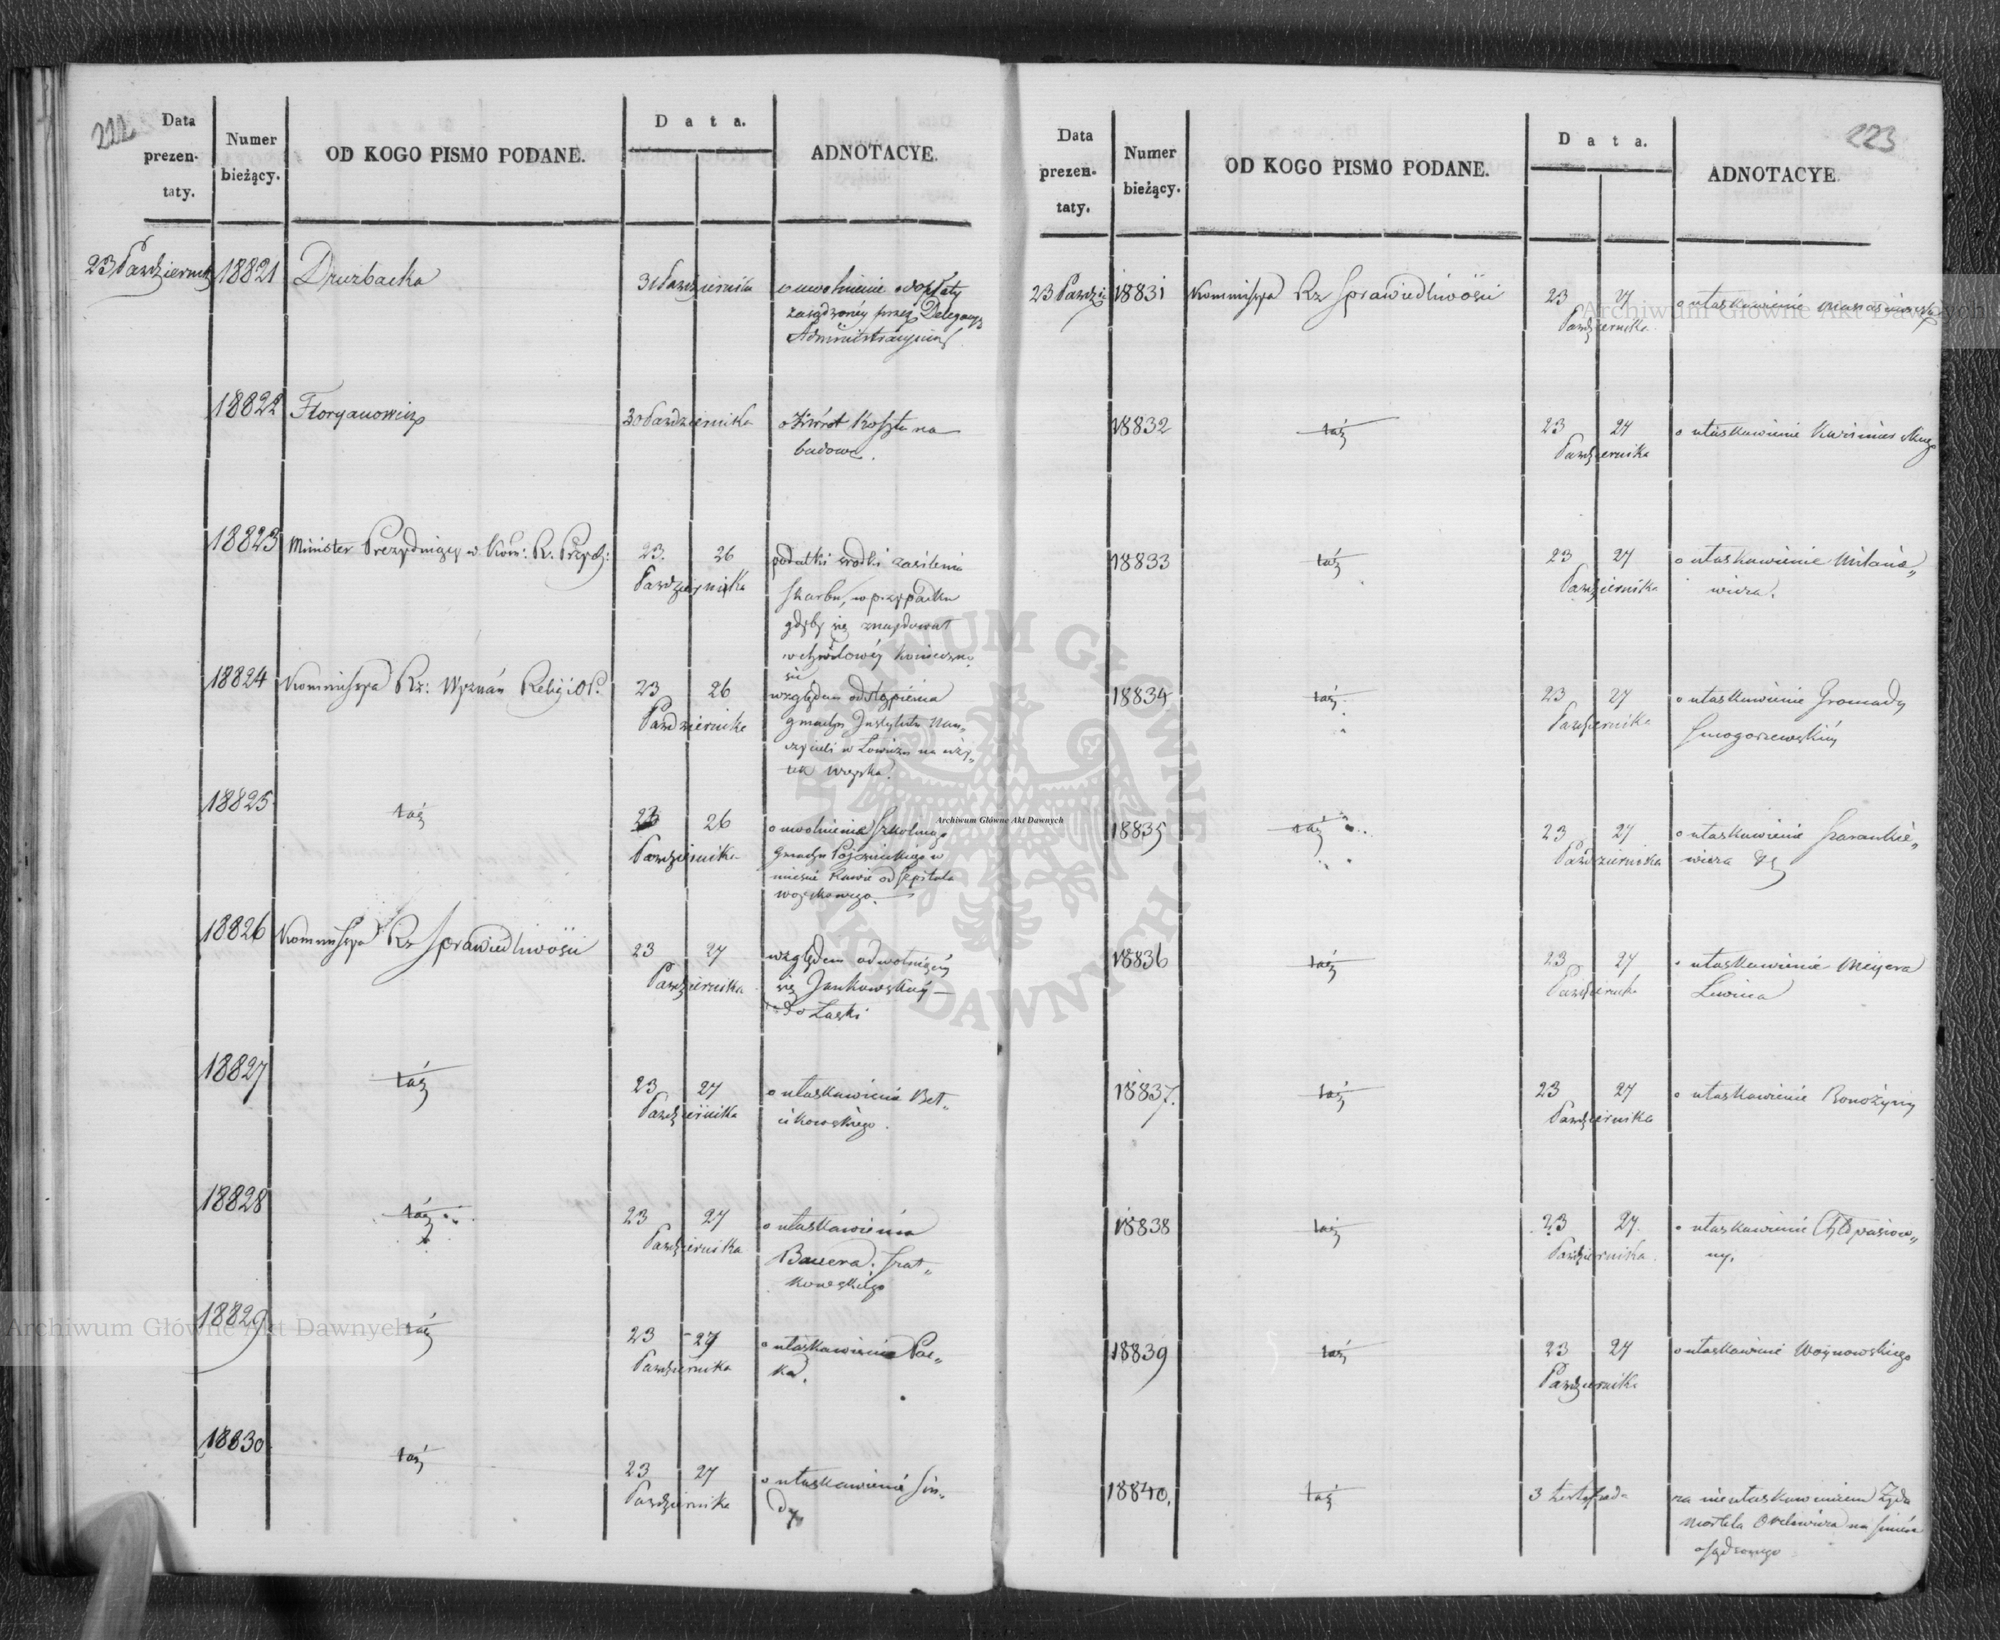 222
Data
prezen-
taty.
Numer
bieżący.
OD KOGO PISMO PODANE.
Data.
ADNOTACYE.
23 Październik 18821 Druzbacka 31 Października o uwolnienie od opłaty
zasądzonéy przez Delegacyą
Administracyiną
18822 Floryanowicz 30 Października o Zwrot Kosztu na
budowę.
18823 Minister Prezyduiący w Kom: R. Przych: 23. 26
Października
podatki srodki zasilenia
Skarbu, w przypadku
gdyby się znaydował
w chwilowéy konieczno
ści
18824 Kommissya Rz: Wyznań Religi i O P. 23 26
Października
względem odstąpienia
gmachu Instytutu Nau„
czycieli w Łowiczu na uży„
tek woyska.
18825 taż 23 26
Października
o uwolnienie Szkolnego
Gmachu Poiezuickiego w
mieście Rawie od Szpitala
woyskowego.
18826 Kommissya Rz Sprawiedliwości 23 27
Października
względem odwołuiącéy
się Jankowskiéy
do Łaski
18827 taż 23 27
Października
o ułaskawienie Bet„
cikowskiego.
18828 taż 23 27
Października
o ułaskawienie
Bauera, Szat„
kowskiego
18829 taż 23 27
Października
o ułaskawienie Pac„
ka.
18830 taż 23 27
Października
o ułaskawienie Sin„
dy
223
Data
prezen-
taty.
Numer
bieżący.
OD KOGO PISMO PODANE.
Data.
ADNOTACYE.
23 Paździe 18831 Kommissya Rz Sprawiedliwości 23 27
Października
o ułaskawienie
18832 taż 23 27
Października
o ułaskawienie
18833 taż 23 27
Października
o ułaskawienie Milanie„
wicza.
18834 taż 23 27
Października
o ułaskawienie Gromady
Smogorzewskiéy
18835 taż 23 27
Października
o ułaskawienie Szarankie„
wicza
18836 taż 23 27
Października
o ułaskawienie Meyera
Lewina
18837. taż 23 27
Października
o ułaskawienie
18838 taż 23 27
Października.
o ułaskawienie Chłopasiow„
ny.
18839 taż 23 27
Października
o ułaskawienie Woynowskiego
18840. taż 3 Listopada za nieułaskawieniem Żyda
na śmierć
osądzonego
Archiwum Główne Akt Dawnych
Archiwum Główne Akt Dawnych
Archiwum Główne Akt Dawnych
ARCHIWUM GŁÓWNE AKT DAWNYCH